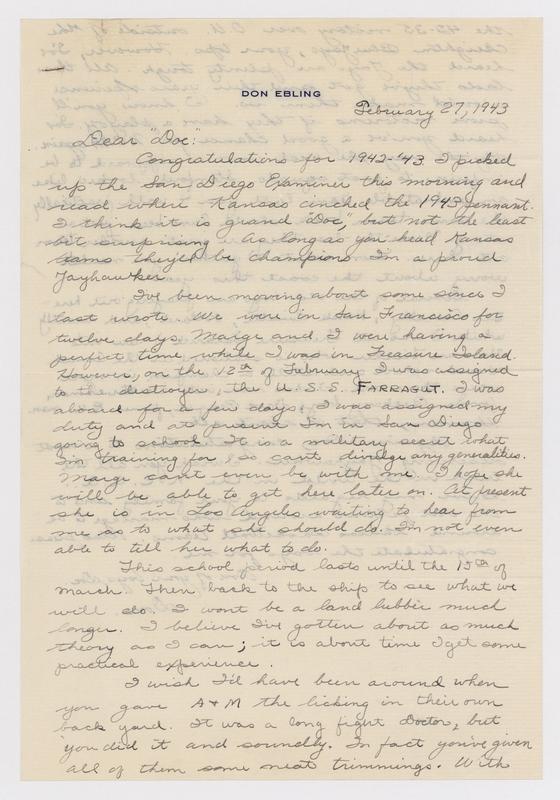 DON EBLING
February 27, 1943
Dear "Doc":
Congratulations for 1942-'43 I picked
up the San Diego Examiner this morning and
read where Kansas cinched the 1943 pennant.
I think it is grand "Doc", but not the least
bit surprising. As long as you head Kansas
teams they'll be champions. I'm a proud
Jayhawker.
I've been moving about some since I
last wrote. We were in San Francisco for
twelve days. Marge and I were having a
perfect time while I was in Treasure Island.
However, on the 12th of February I was assigned
to the destroyer, the U.S.S. FARRAGUT. I was
aboard for a few days; I was assigned my
duty and at present I'm in San Diego
going to school. It is a military secret what
I'm training for, so can't divulge any generalities.
Marge can't even be with me. I hope she
will be able to get here later on. At present
she is in Los Angeles waiting to hear from
me as to what she should do. I'm not even
able to tell her what to do.
This school period lasts until the 15th of
March. Then back to the ship to see what we
will do. I wont be a land lubber much
longer. I believe I've gotten about as much
theory as I can; it is about time I get some
practical experience.
I wish I'd have been around when
you gave A+M the licking in their own
back yard. It was a long fight Doctor, but
you did it and soundly. In fact you've given
all of them some neat trimmings. With